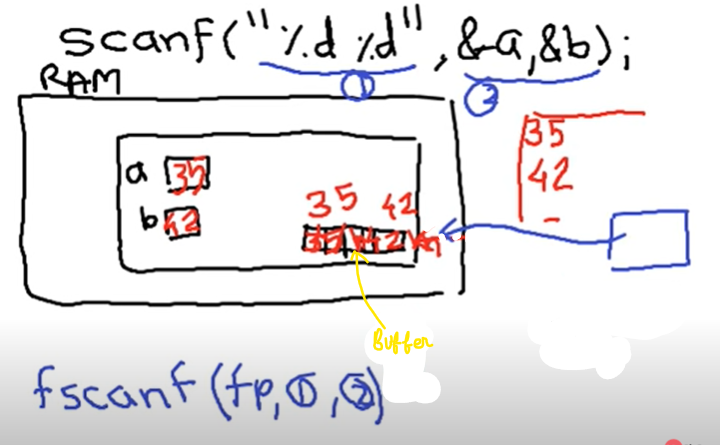 scanf("%d %d", &a, &b);
① ②
RAM
35
42
a 35
b 42
35 42
35\n42\n
Buffer
fscanf(fp, ①, ②)